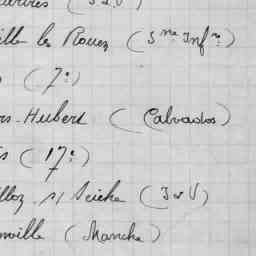 (I & V)
ville les Rouen (Sne Infre)
(7e)
rs-Hubert (Calvados)
is (17e)
lloz s/ Seiche (I & V)
nville (Manche)